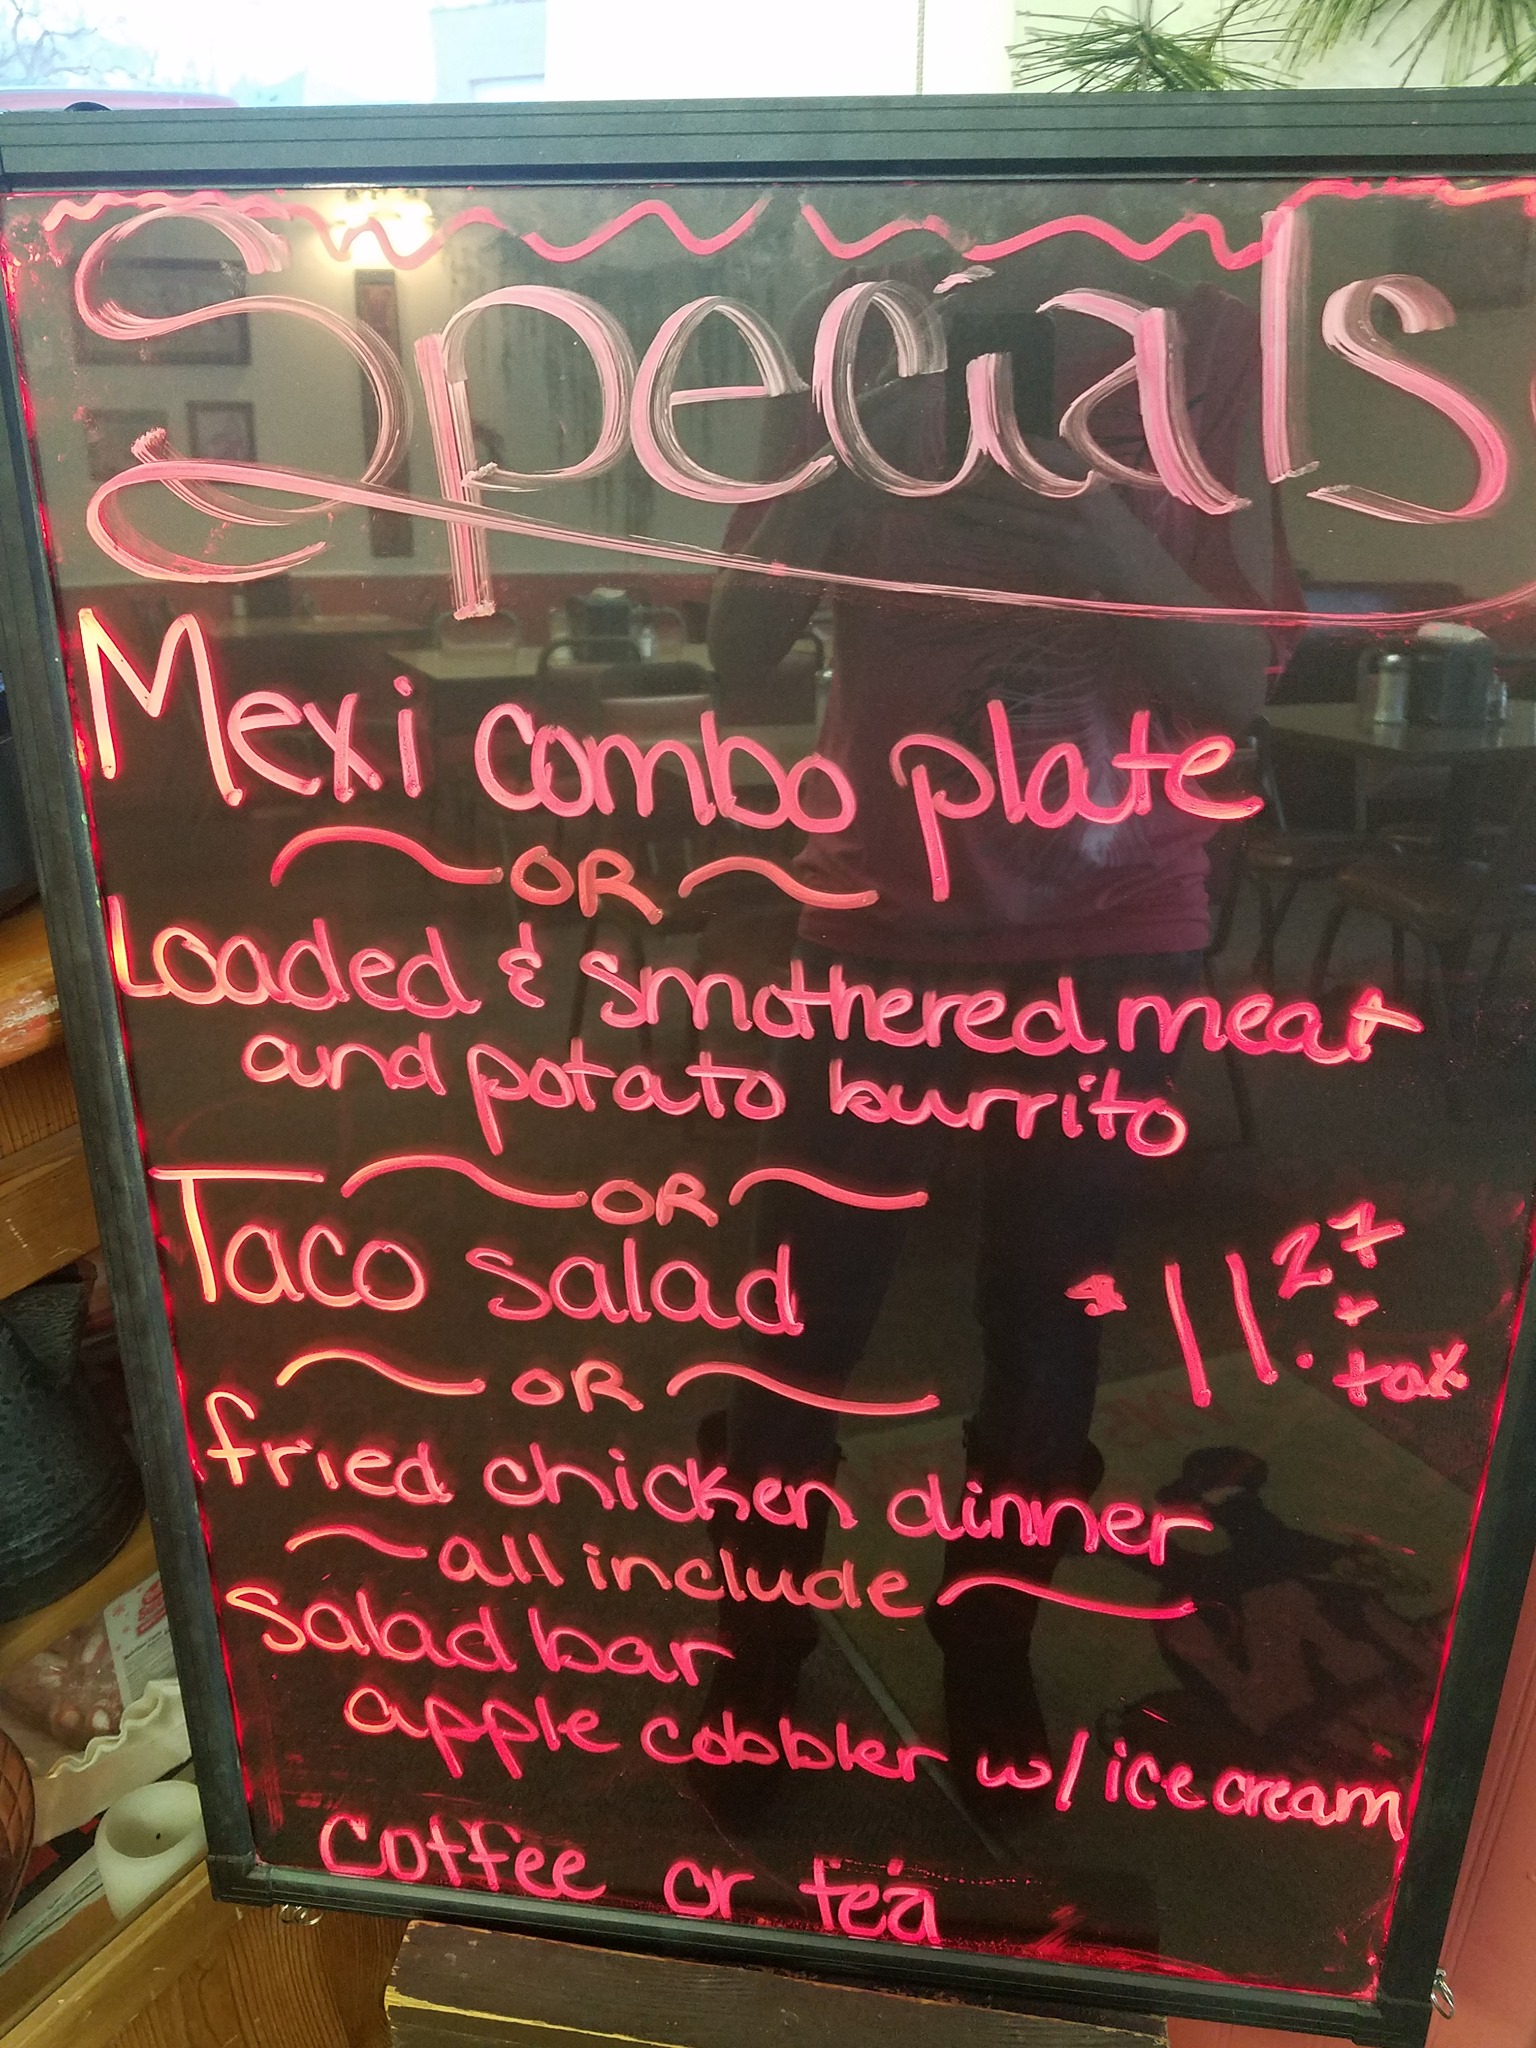 Specials
Mexi combo plate
~ OR ~
Loaded & smothered meat
and potato burrito
~ OR ~
Taco salad
$11.27
+
tax
~ OR ~
fried chicken dinner
~ all include ~
salad bar
apple cobbler w/ ice cream
coffee or tea